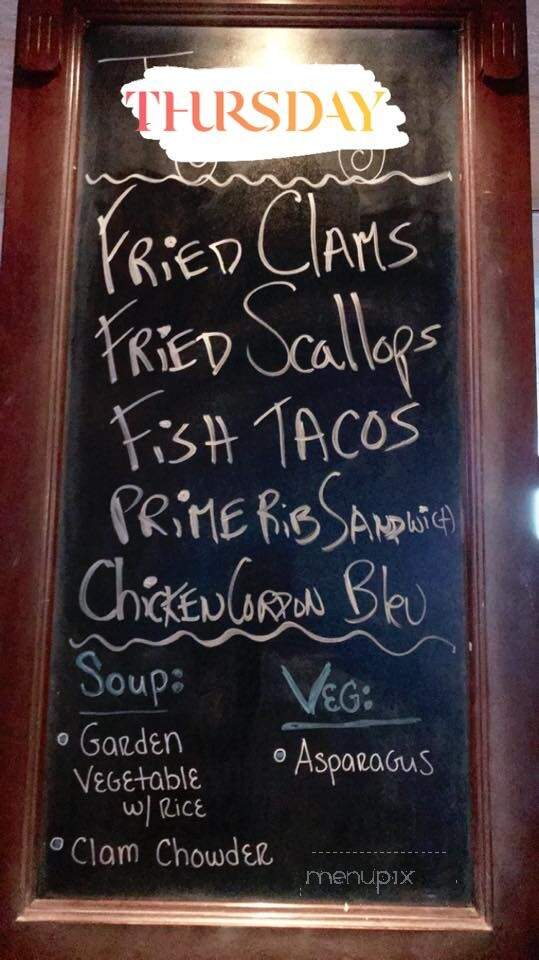 THURSDAY
FRiED ClAMS
FRiED Scallops
FiSH TACOS
PRiME RiB SANDwicH
CHiCKEN CORDON Bleu
Soup:
VEG:
• GaRden
VEGEtable
w/ RicE
• AspaRaGus
• Clam ChowdeR
menupix